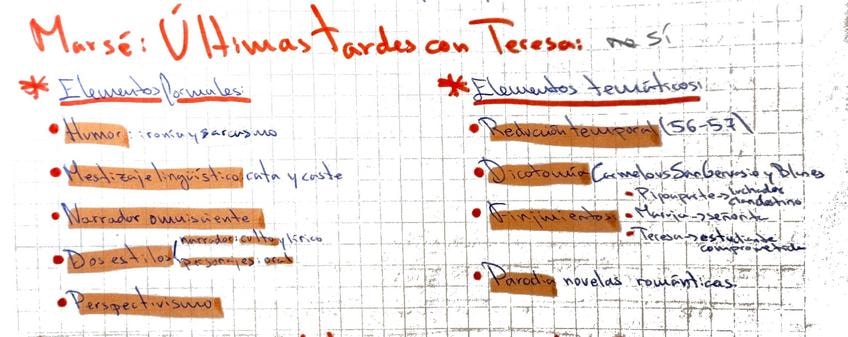 Marsé: Últimas tardes con Teresa: no sí
* Elementos formales:
• Humor: ironía y sarcasmo
• Mestizaje lingüístico: cata y caste
• Narrador omnisciente
• Dos estilos narrador: culto y lírico
personajes: oral
• Perspectivismo
* Elementos temáticos:
• Reducción temporal (56-57)
• Dicotomía Carmelo vs San Gervasio y Blanes
• Finjimientos • Pijoaparte → luchador clandestino
• Maruja → señorita
• Teresa → estudiante comprometida
• Parodia novelas románticas.